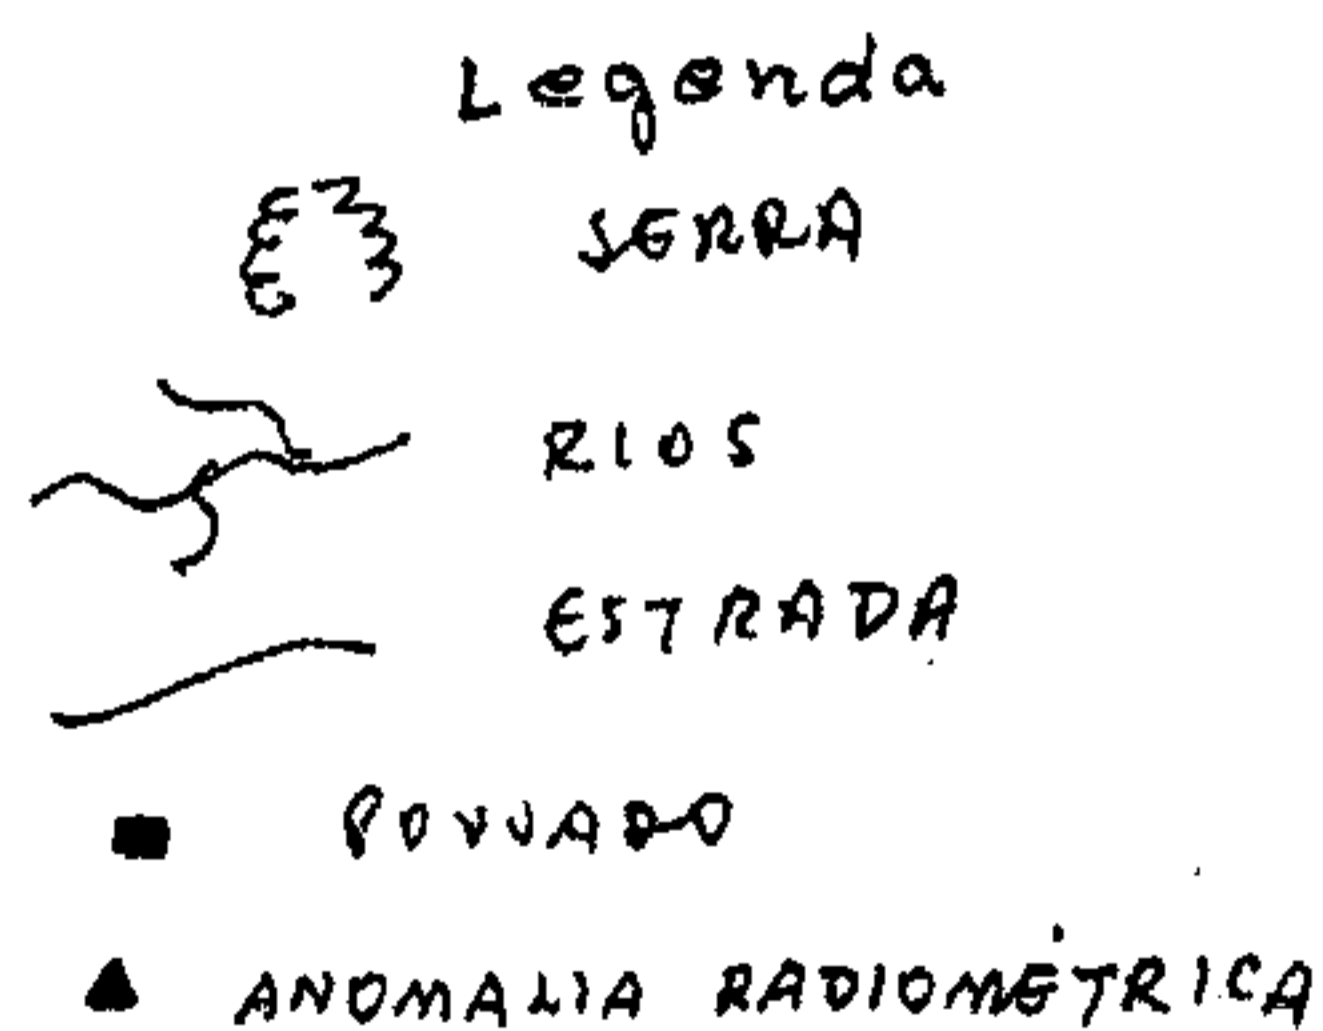 Legenda
SERRA
RIOS
ESTRADA
POVUADO
ANOMALIA RADIOMÉTRICA